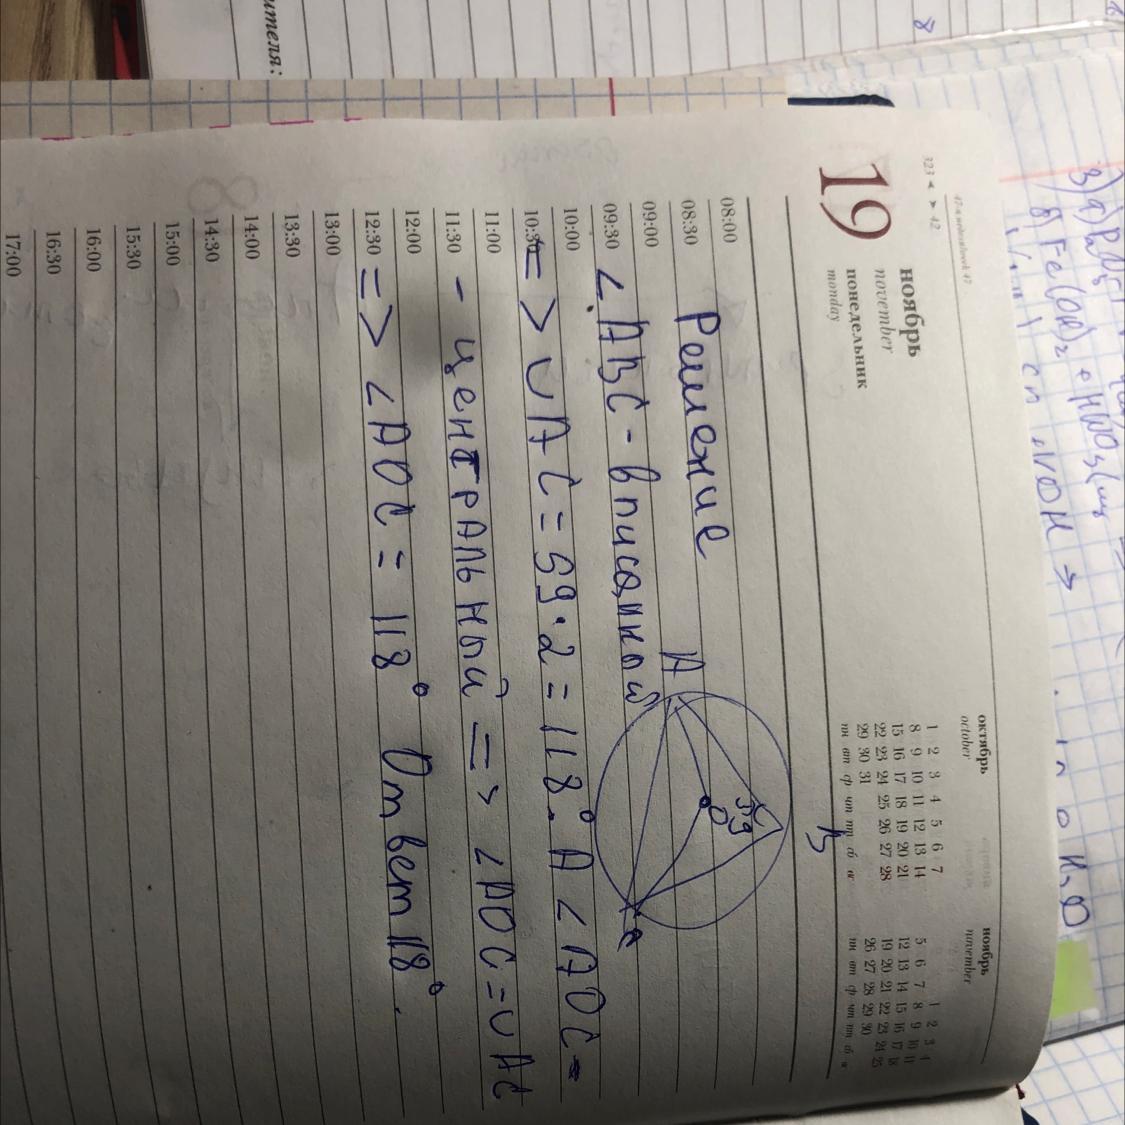 ителя:
47-я неделя/week 47
323 ◄ ► 42
19
ноябрь
november
понедельник
monday
октябрь
october
1 2 3 4 5 6 7
8 9 10 11 12 13 14
15 16 17 18 19 20 21
22 23 24 25 26 27 28
29 30 31
пн вт ср чт пт сб вс
ноябрь
november
1 2 3 4
5 6 7 8 9 10 11
12 13 14 15 16 17 18
19 20 21 22 23 24 25
26 27 28 29 30
пн вт ср чт пт сб в
08:00
08:30 Решение
09:00
09:30 <ABC - вписанный
10:00
10:30 => ∪AC = 59·2 = 118°. А <AOC -
11:00
11:30 - центральный => <AOC = ∪AC
12:00
12:30 => <AOC = 118° Ответ 118°.
13:00
13:30
14:00
14:30
15:00
15:30
16:00
16:30
17:00
A
B
C
O
59